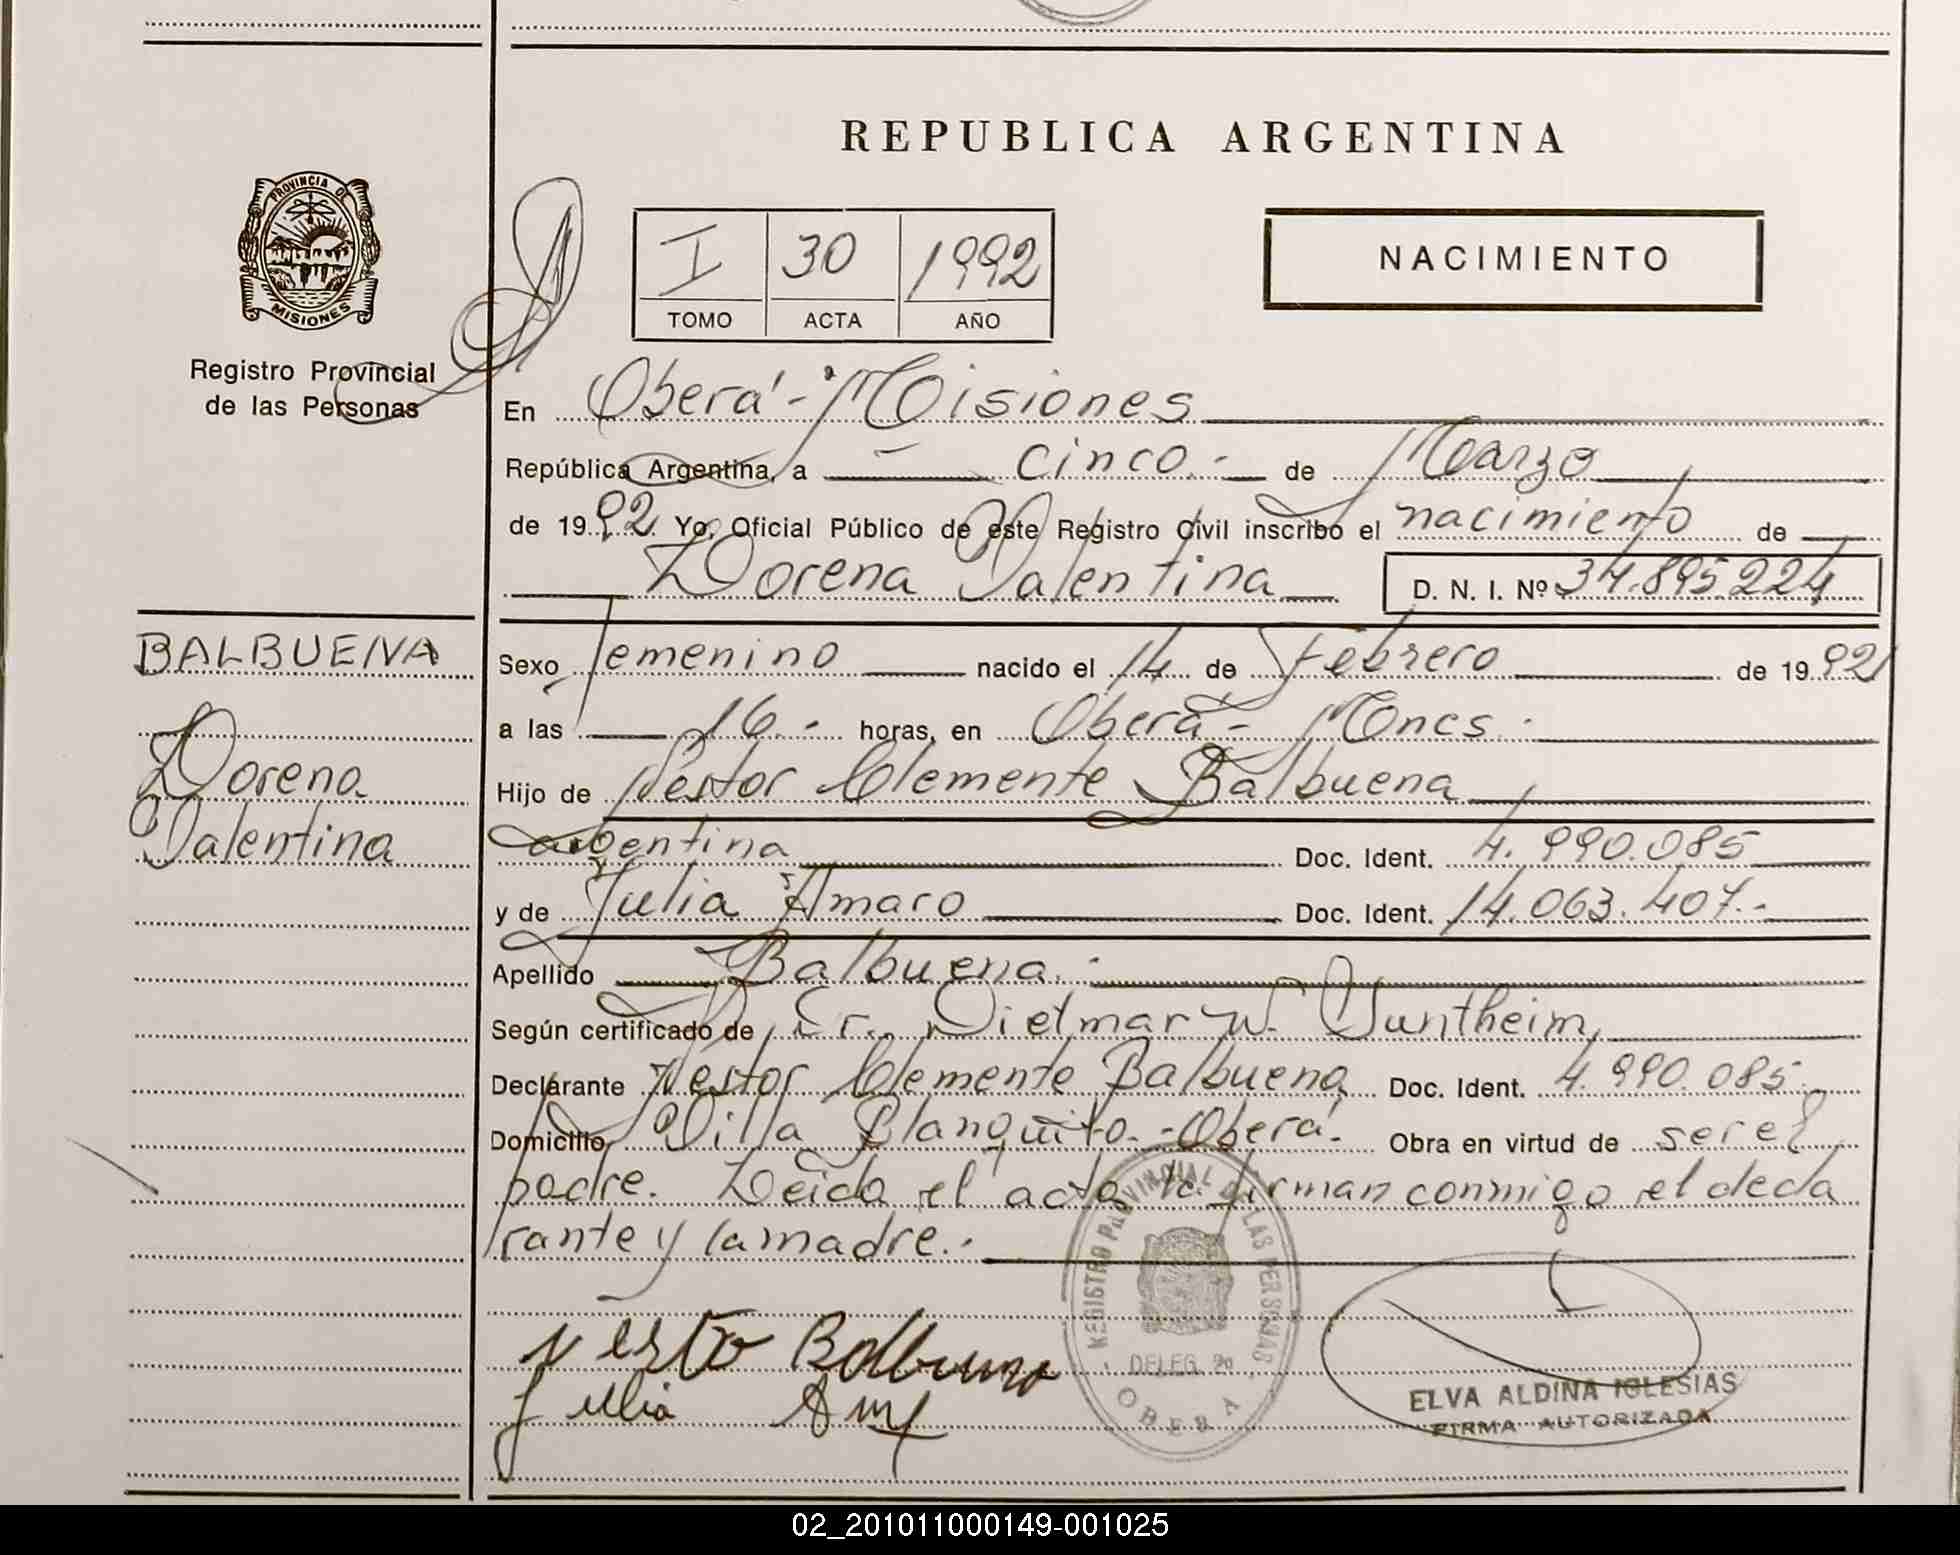 REPUBLICA ARGENTINA
PROVINCIA DE
MISIONES
Registro Provincial
de las Personas
I 30 1992
TOMO ACTA AÑO
NACIMIENTO
En Oberá - Misiones
República Argentina, a cinco.- de Marzo
de 1992 Yo, Oficial Público de este Registro Civil inscribo el nacimiento de
Lorena Valentina D. N. I. Nº 34.895.224
BALBUENA
Lorena
Valentina
Sexo femenino nacido el 14 de Febrero de 1992
a las 16.- horas, en Oberá - Mnes.
Hijo de Néstor Clemente Balbuena
argentina Doc. Ident. 4.990.085
y de Julia Amaro Doc. Ident. 14.063.407.-
Apellido Balbuena.-
Según certificado de Dr. Dietmar W. Guntheim,
Declarante Néstor Clemente Balbuena Doc. Ident. 4.990.085
Domicilio Villa Blanquita.-Oberá.- Obra en virtud de ser el
padre. Leída el acta la firman conmigo el decla
rante y la madre.-
Nesto Balbuena
Julia
REGISTRO PROVINCIAL DE LAS PERSONAS
DELEG. 20
OBERA
ELVA ALDINA IGLESIAS
FIRMA AUTORIZADA
02_201011000149-001025